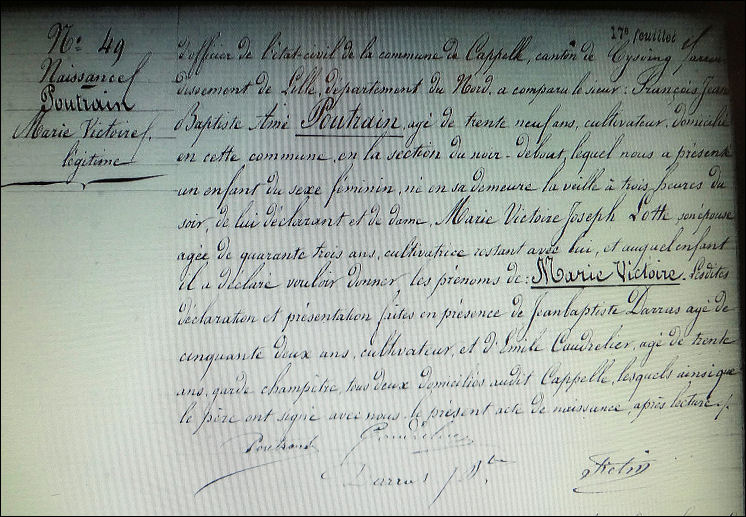 Nº 49
Naissance
Poutrain
Marie Victoire
légitime
17e feuillet
d'officier de l'état-civil de la commune de Cappelle, canton de Cysoing, arron
dissement de Lille, département du Nord, a comparu le sieur: François Jean
Baptiste Amé Poutrain, agé de trente neuf ans, cultivateur, domicilié
en cette commune, en la section du noir-debout, lequel nous a présenté
un enfant du sexe féminin, né en sa demeure la veille à trois heures du
soir, de lui déclarant et de dame, Marie Victoire Joseph Lotte son épouse
agée de quarante trois ans, cultivatrice restant avec lui, et auquel enfant
il a déclaré vouloir donner, les prénoms de: Marie Victoire. Lesdites
déclaration et présentation faites en présence de Jeanbaptiste Darras agé de
cinquante deux ans, cultivateur, et d'Emile Coudrelier, agé de trente
ans, garde champêtre, tous deux domiciliés audit Cappelle, lesquels ainsi que
le père ont signé avec nous le présent acte de naissance, après lecture./.
Poutrain
Coudrelier
Darras J Bte